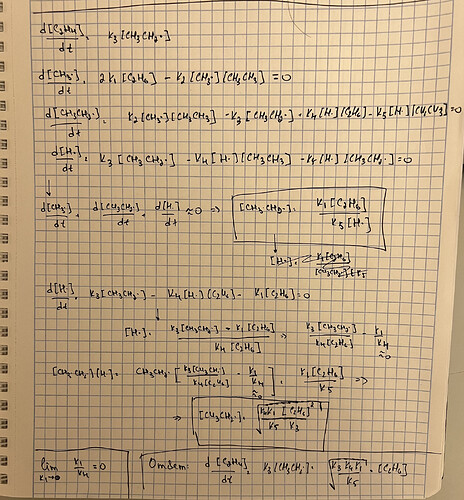 d[C2H4]/dt = K3[CH3CH2·]
d[CH3·]/dt = 2K1[C2H6] - K2[CH3·][CH3CH3] = 0
d[CH3CH2·]/dt = K2[CH3·][CH3CH3] - K3[CH3CH2·] + K4[H·][C2H6] - K5[H·][CH3CH2] = 0
d[H·]/dt = K3[CH3CH2·] - K4[H·][CH3CH3] - K5[H·][CH3CH2·] = 0
↓
d[CH3·]/dt + d[CH3CH2·]/dt + d[H·]/dt ≈ 0 => [CH3CH2·] = K1[C2H6]/K5[H·]
↓
[H·] = K1[C2H6]/[CH3CH2·]K5
d[H·]/dt = K3[CH3CH2·] - K4[H·][C2H6] - K1[C2H6] = 0
↓
[H·] = K3[CH3CH2·] - K1[C2H6]/K4[C2H6] => K3[CH3CH2·]/K4[C2H6] - K1/K4 ≈0
[CH3CH2·][H·] = CH3CH2·[K3[CH3CH2·]/K4[C2H6] - K1/K4 ≈0] = K1[C2H6]/K5 =>
=> [CH3CH2·] =
lim K1→0 K1/K4 = 0
d[C2H4]/dt = K3[CH3CH2·] = √K3K4K1/K5 · [C2H6]